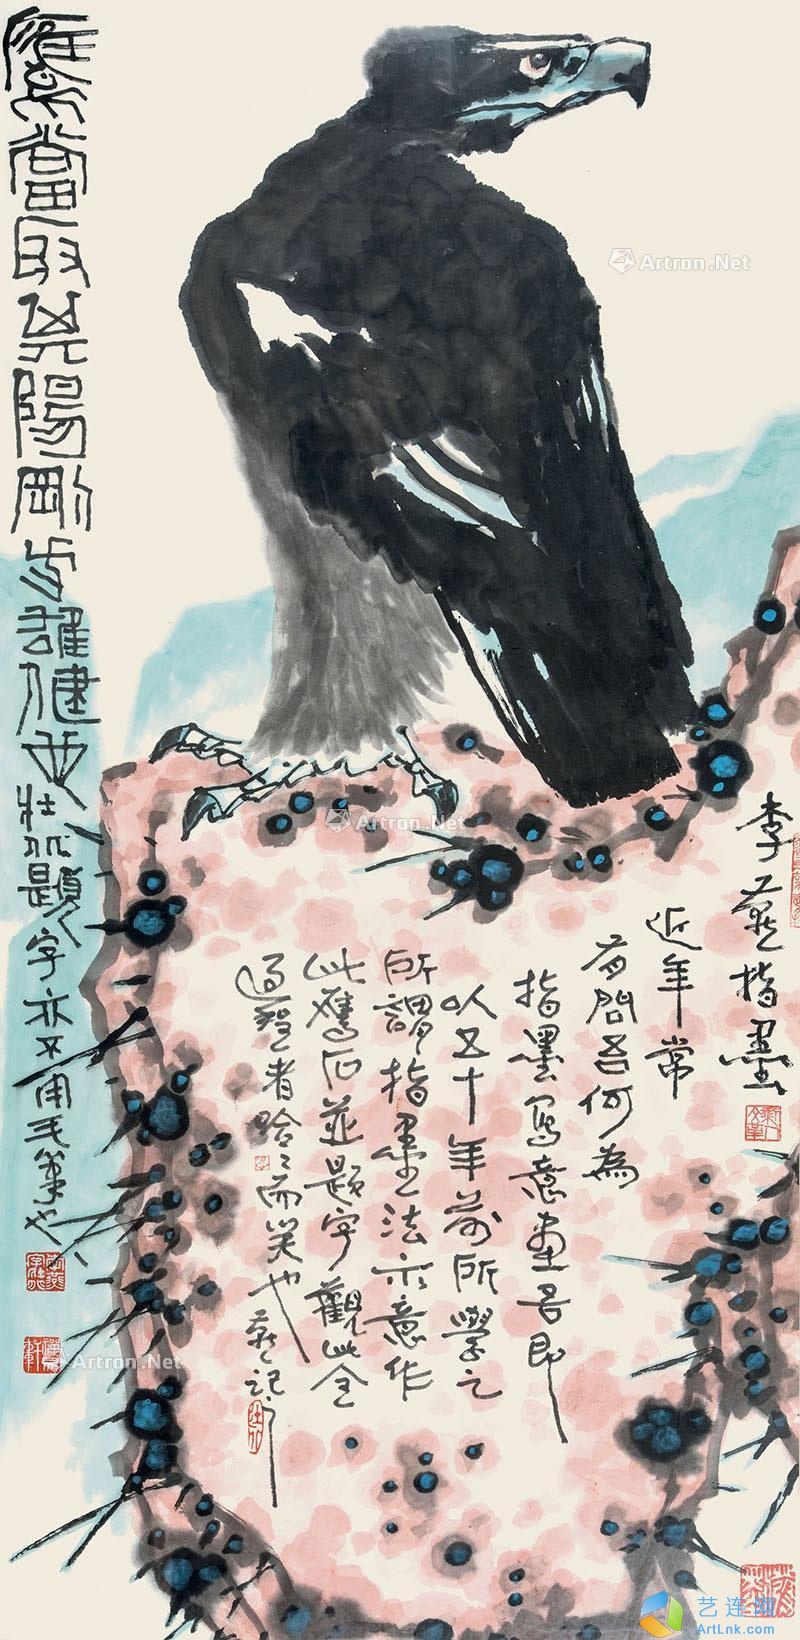 李燕指墨
近年常
有問吾何為
指墨寫意畫吾即
以五十年前所學之
所謂指墨法示意作
此鷹石並題字觀此全
過程者哈〻而笑也 燕記
鷹當取其陽剛与雄健也 壯北題字亦不用毛筆也
Artron.Net
Artron.Net
Artron.Net
艺连网
ArtLnk.com